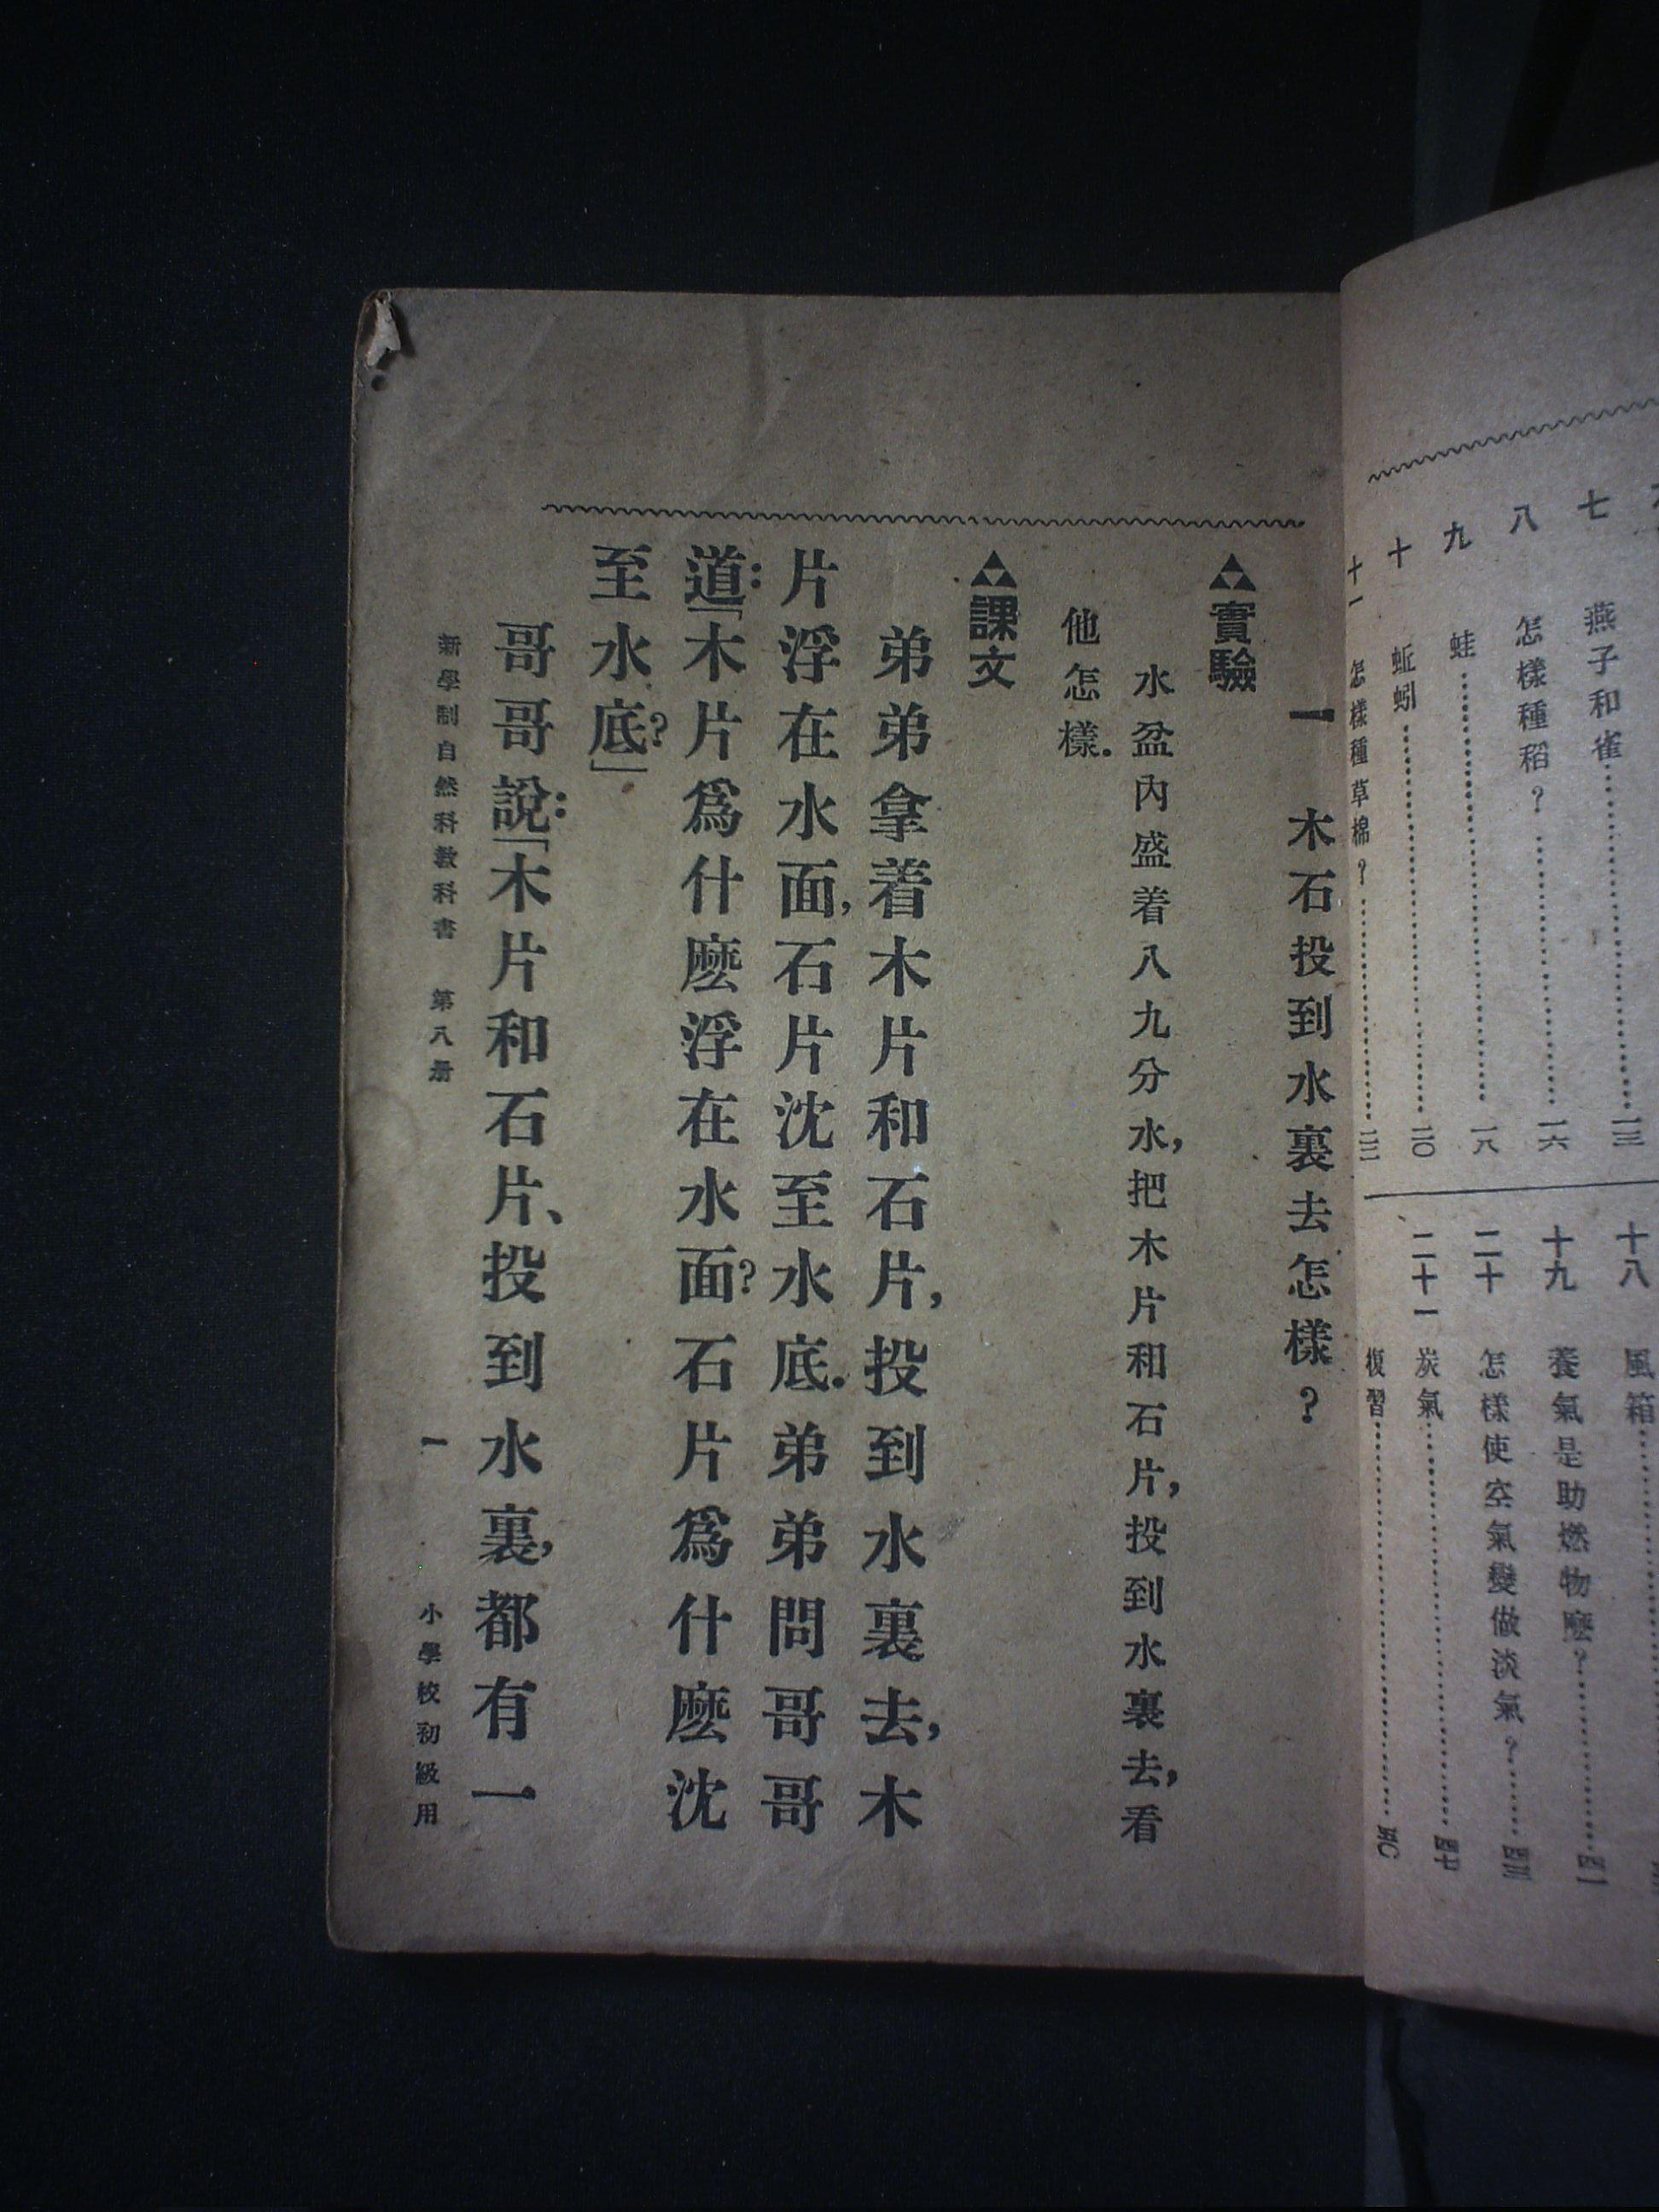 七 燕子和雀……一三
八 怎樣種稻?……一六
九 蛙……一八
十 蚯蚓……二〇
十一 怎樣種草棉?……二二
十八 風箱……
十九 養氣是助燃物麼?……四一
二十 怎樣使空氣變做淡氣?……四三
二十一 炭氣……
複習……
一 木石投到水裏去怎樣?
實驗
水盆內盛着八九分水,把木片和石片,投到水裏去,看
他怎樣.
課文
弟弟拿着木片和石片,投到水裏去,木
片浮在水面,石片沈至水底.弟弟問哥哥
道:「木片爲什麽浮在水面?石片爲什麽沈
至水底?」
哥哥說:「木片和石片、投到水裏,都有一
新學制自然科教科書 第八册 一 小學校初級用